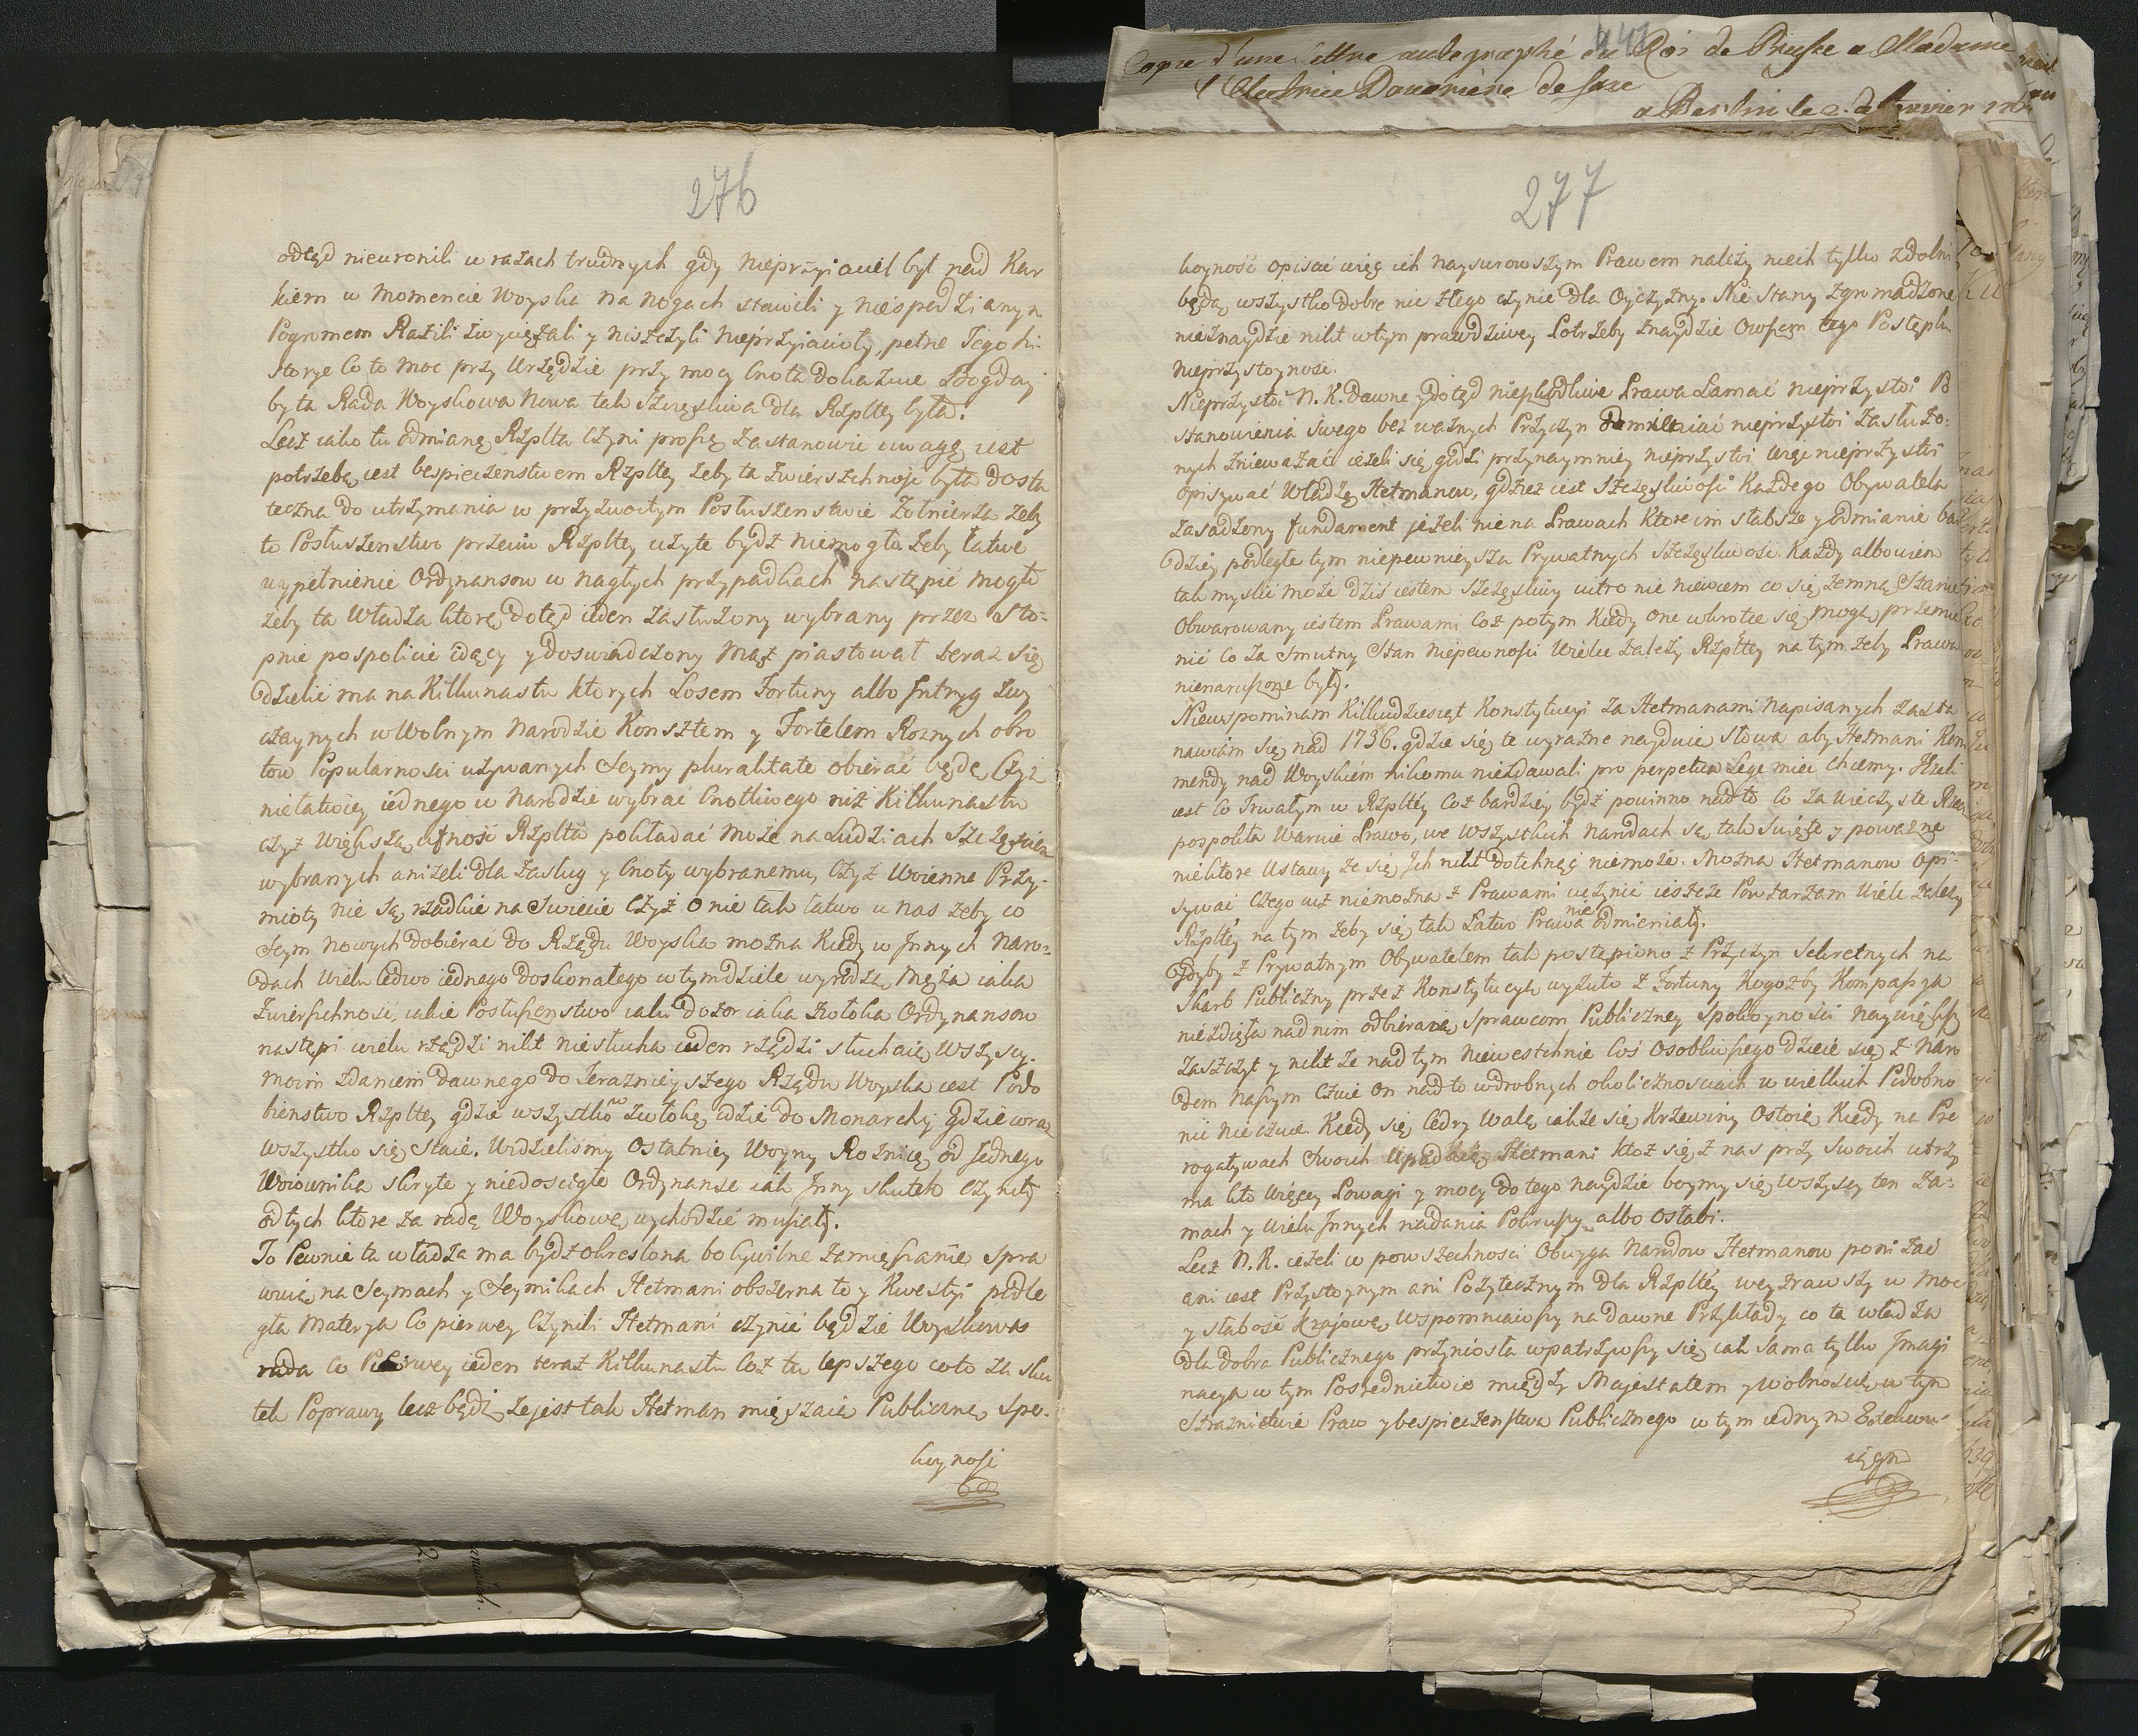 Copie d'une lettre autographe du Roi de Prusse a Madame
l'Electrice Douairiere de Saxe
a Berlin le 2. de Janvier
276
odtąd nieuronili w razach trudnych gdy nieprzyiaciel był nad Kar
kiem w momencie Woyska na nogach stawili y niespodzianym
Pogromem Razili zwyciężali y niszczyli nieprzyiacioły, pełne Tego hi-
storye Co to moc przy Urzędzie przy mocy Cnota dokazuie Bogday
by ta Rada Woyskowa Nowa tak szczęśliwa dla Rzpltey była.
Lecz iako tu odmianę Rzplta czyni proszę zastanowić uwagę iest
potrzebą, iest bespieczenstwem Rzpltey żeby ta zwierzchność była dosta
teczna do utrzymania w przyzwoitym Posłuszenstwie Żołnierza żeby
to Posłuszenstwo przeciw Rzpltey użyte bydź niemogło. żeby łatwe
wypełnienie Ordynansow w nagłych przypadkach nastąpić mogło
żeby ta Władza którą dotąd ieden zasłużony wybrany przez Sto-
pnie pospolicie idący y doswiadczony Mąż piastował teraz się
dzielić ma na Kilkunastu ktorych Losem Fortuny albo Intryg zwy
czaynych w Wolnym Narodzie Konsztem y Fortelem Roznych obro
tow Popularnosci używanych Seymy pluralitate obierać będą, Czyż
niełatwiey iednego w Narodzie wybrać Cnotliwego niż Kilkunastu
czyż większą ufność Rzplta pokładać może na Ludziach szczęściem
wybranych aniżeli dla zasług y Cnoty wybranemu, Czyż Woienne Przy-
mioty nie są rzadkie na Swiecie Czyż o nie tak łatwo u nas żeby co
Seym nowych dobierać do Rządu Woyska można Kiedy w Innych Naro-
dach wielu ledwo iednego doskonałego w tym dziele wyrodzą Męża iaka
zwierzchność, iakie Posłuszenstwo iaki dozor iaka zwłoka Ordynansow
nastąpi wielu rządzi nikt niesłucha ieden rządzi słuchaią wszyscy.
moim zdaniem dawnego do Teraznieyszego Rządu Woyska iest Podo
bienstwo Rzpltey gdzie wszystko w zwłokę idzie do Monarchij gdzie wraz
wszystko się staie. Widzieliśmy ostatniey Woyny Roznicę od Jednego
Woiownika skryte y niedosciągłe Ordynanse iak Inny skutek czyniły
od tych ktore za radą Woyskową wychodzić musiały.
To Pewnie ta władza ma bydź okreslona bo Cywilne zamięszanie spra
wuią na Seymach y Seymikach Hetmani obszerna to y Kwestyi podle
gła Materya Co pierwey czynili Hetmani czynić będzie Woyskowa
rada co Pierwey ieden teraz Kilkunastu Coż tu lepszego co to za sku
tek Poprawy lecz bądź że jest tak Hetman mięszaią Publiczną Spo-
koynosc
277
koyność opisać więc ich naysurowszym Prawem należy niech tylko zdolni
będą wszystko dobre nic złego czynić dla Oyczyzny. Nie Stany zgromadzone
nieznaydzie nikt w tym prawdziwey Potrzeby znaydzie Owszem tego Postępku
nieprzystoyność.
Nieprzystoi N. K. Dawne y dotąd nieszkodliwe Prawa Łamać nieprzystoi Po
stanowienia swego bez ważnych Przyczyn odmieniać nieprzystoi zasłużo-
nych zniewazać ieżeli się godzi przynaymniey nieprzystoi więc nieprzystoi
opisywać Władzę Hetmanow, gdzież iest szczęśliwości Każdego Obywatela
zasadzony fundament jeżeli nie na Prawach Ktore im słabsze y odmianie bar
dziey podległe tym niepewnieysza Prywatnych szczęśliwość. Każdy albowiem
tak myslić może dziś iestem szczęśliwy iutro nie niewiem co się zemną stanie
Obwarowany iestem Prawami Coż potym Kiedy one wkrotce się mogą przemie
nić Co za Smutny Stan niepewności Wiele zależy Rzpltey na tym żeby Prawa
nienaruszone były.
Niewspominam Kilkudziesiąt Konstytucyi za Hetmanami napisanych zasta
nawiam się nad 1736. gdzie się te wyrazne nayduią słowa aby Hetmani Kom
mendy nad Woyskiem nikomu niezdawali pro perpetua Lege mieć chcemy. Jeżeli
iest Co Trwałym w Rzpltey Coż bardziey bydź powinno nad to Co za wieczyste Rzecz
pospolita Waruie Prawo, we wszystkich narodach są tak święte y poważne
niektore Ustawy że się Ich nikt dotchnąć niemoże. Można Hetmanow opi-
sywać Czego iuż niemożna z Prawami uczynić ieszcze Powtarzam wiele zależy
Rzpltey na tym żeby się tak Łatwo Prawa nie odmieniały.
Gdyby z Prywatnym Obywatelem tak postąpiono z Przyczyn Sekretnych na
Skarb Publiczny przez Konstytucyą wyzuto z Fortuny Kogożby Kompassya
niezdięła nad nim odbieraią Sprawcom Publiczney Spokoyności naywiększy
zaszczyt y nikt że nad tym niewestchnie Coś osobliwszego dzieie się z Naro
dem Naszym Czuie On nad to w drobnych okolicznosciach w wielkich Podobno
nic nieczuie. Kiedy się Cedry Walą iakże się Krzewiny Ostoią Kiedy na Pre
rogatywach Swoich Upadaią Hetmani ktoż się z nas przy Swoich utrzy
ma kto więcey Powagi y mocy do tego naydzie boymy się wszyscy ten za-
mach y wielu Innych nadania Pokruszy albo Osłabi.
Lecz N. K. ieżeli w powszechności Obyczia Narodow Hetmanow poniżać
ani iest Przystoynym ani Pożytecznym dla Rzpltey weyzrawszy w moc
y słabość krajową, wspomniawszy na dawne Przykłady co ta władza
dla dobra Publicznego przyniosła wpatrzywszy się iak sama tylko Imagi
nacya w tym Posrednictwie między Majestatem y wolnoscią w tym
Straznictwie Praw y bespieczenstwa Publicznego w tym iednym